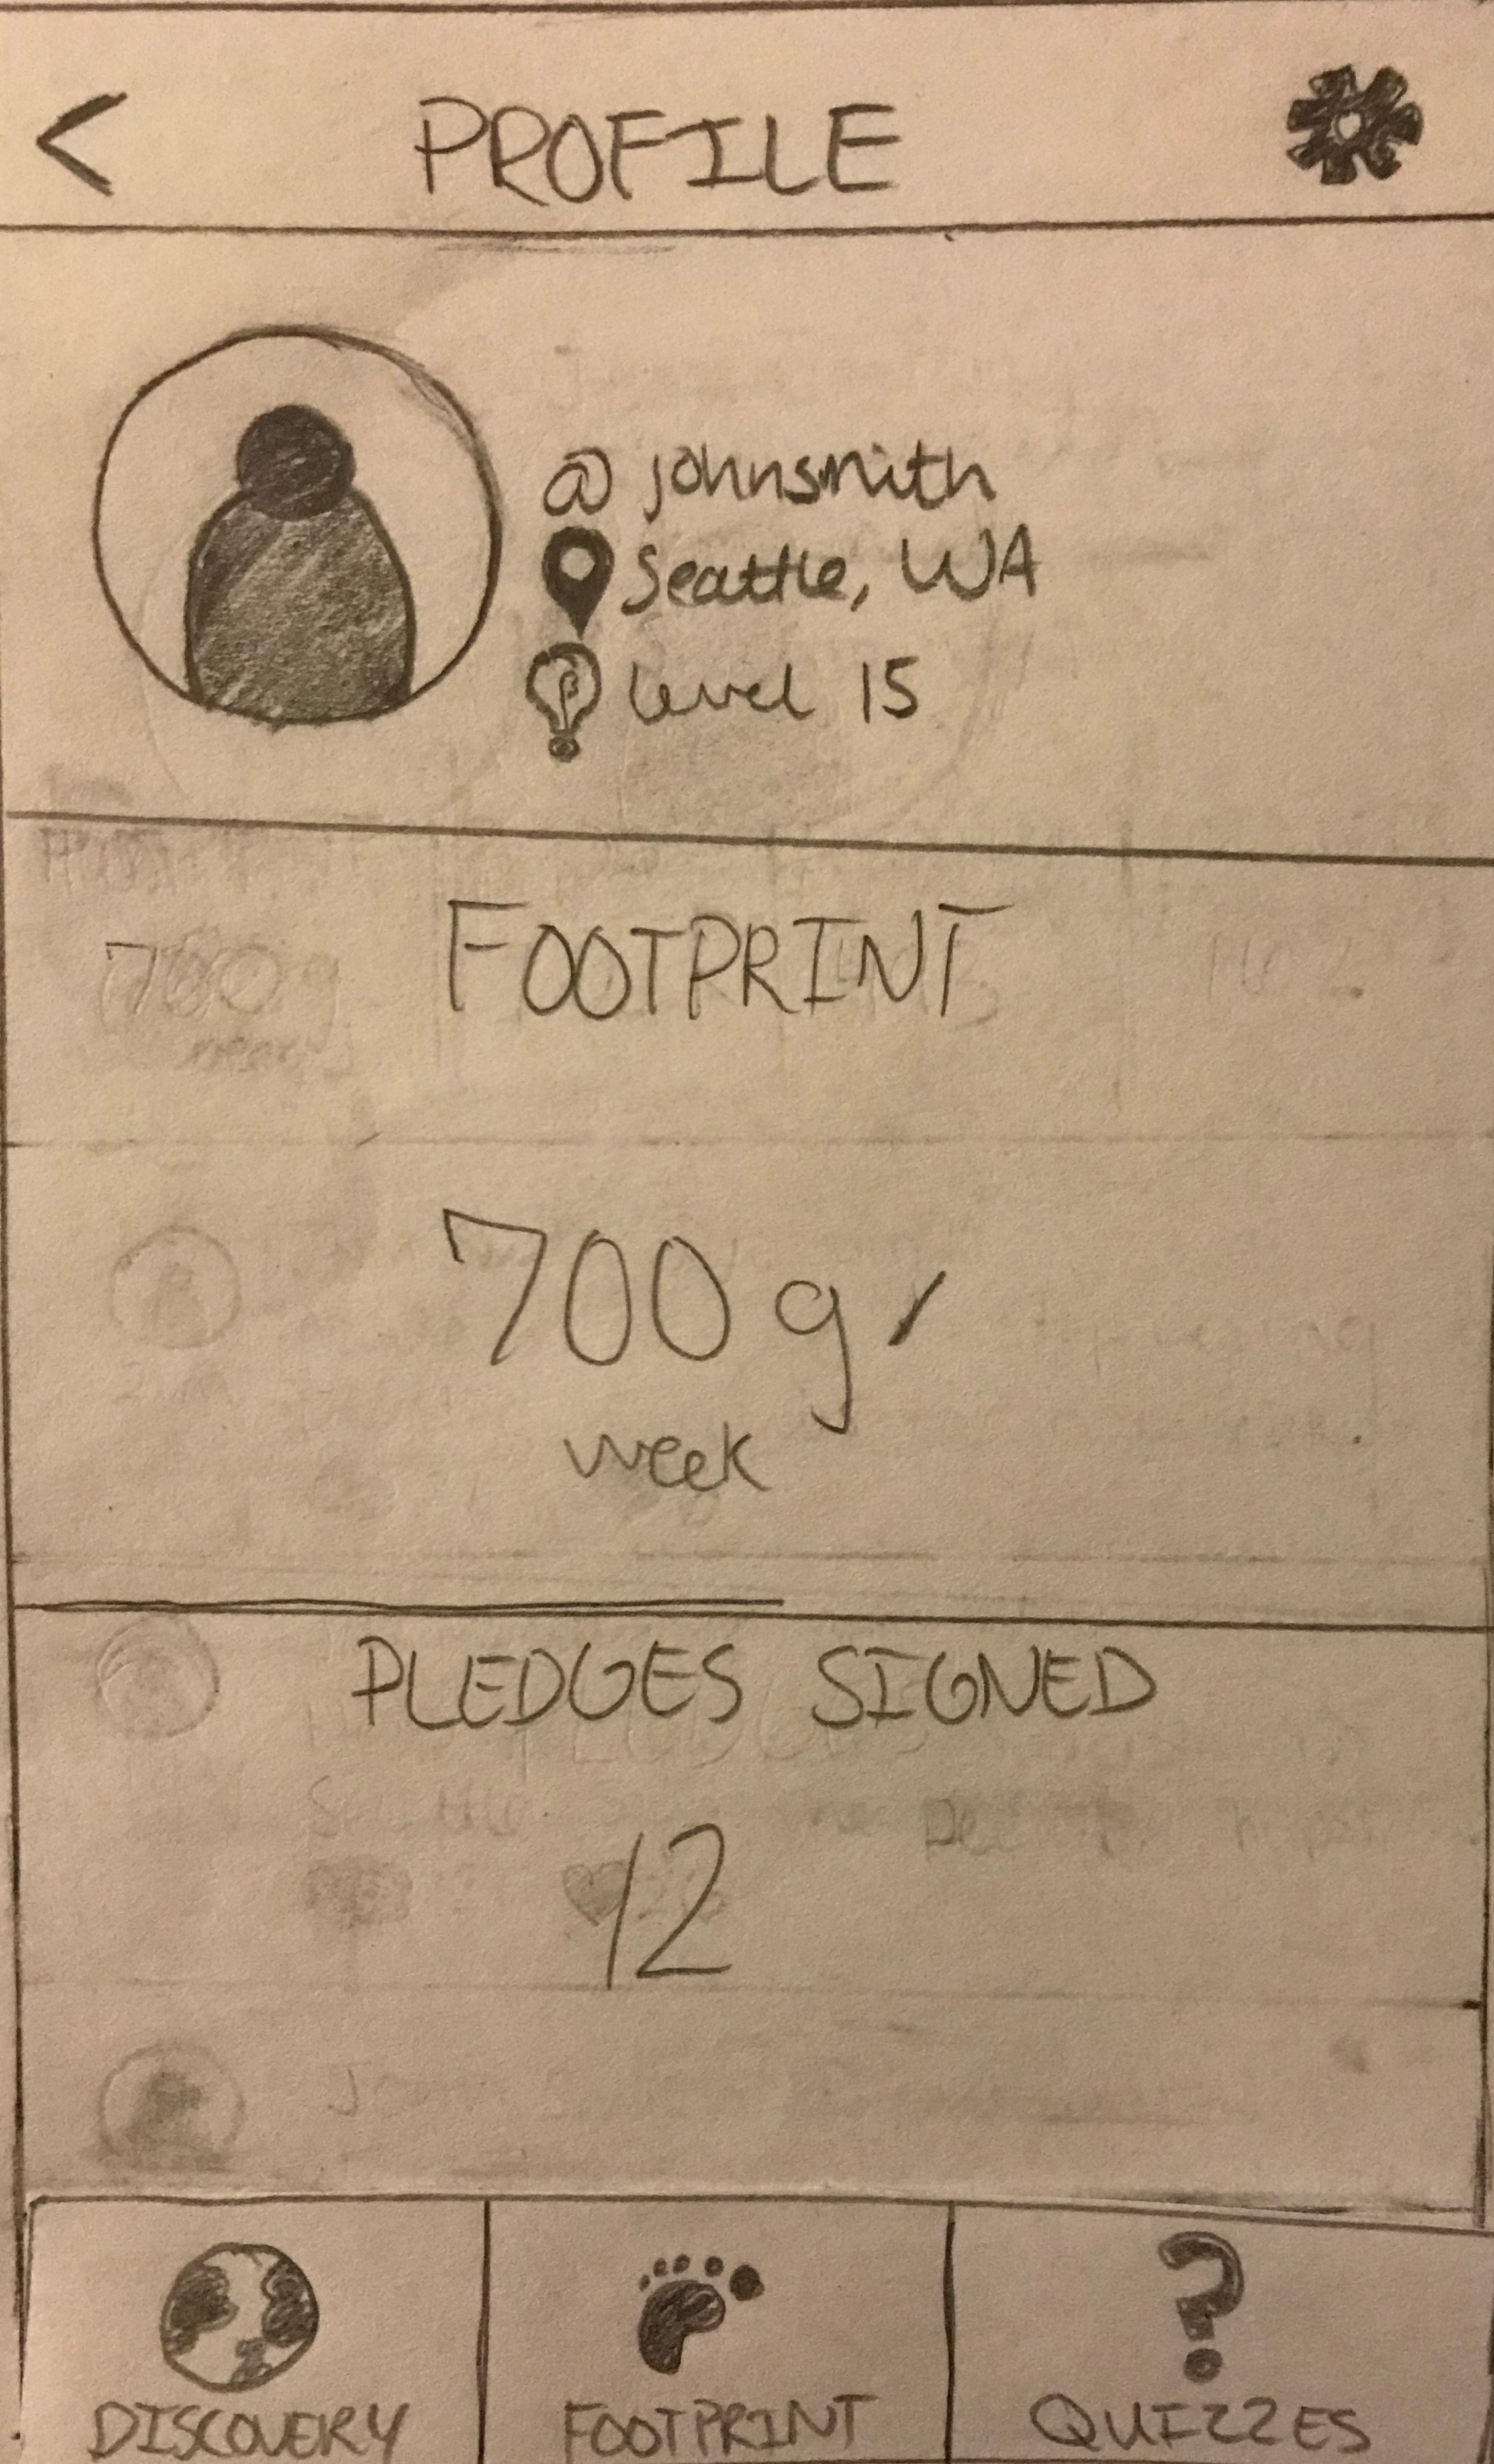 < PROFILE
@johnsmith
Seattle, WA
level 15
FOOTPRINT
700g
700 g/
week
PLEDGES SIGNED
PLEDGES
12
DISCOVERY FOOTPRINT QUIZZES